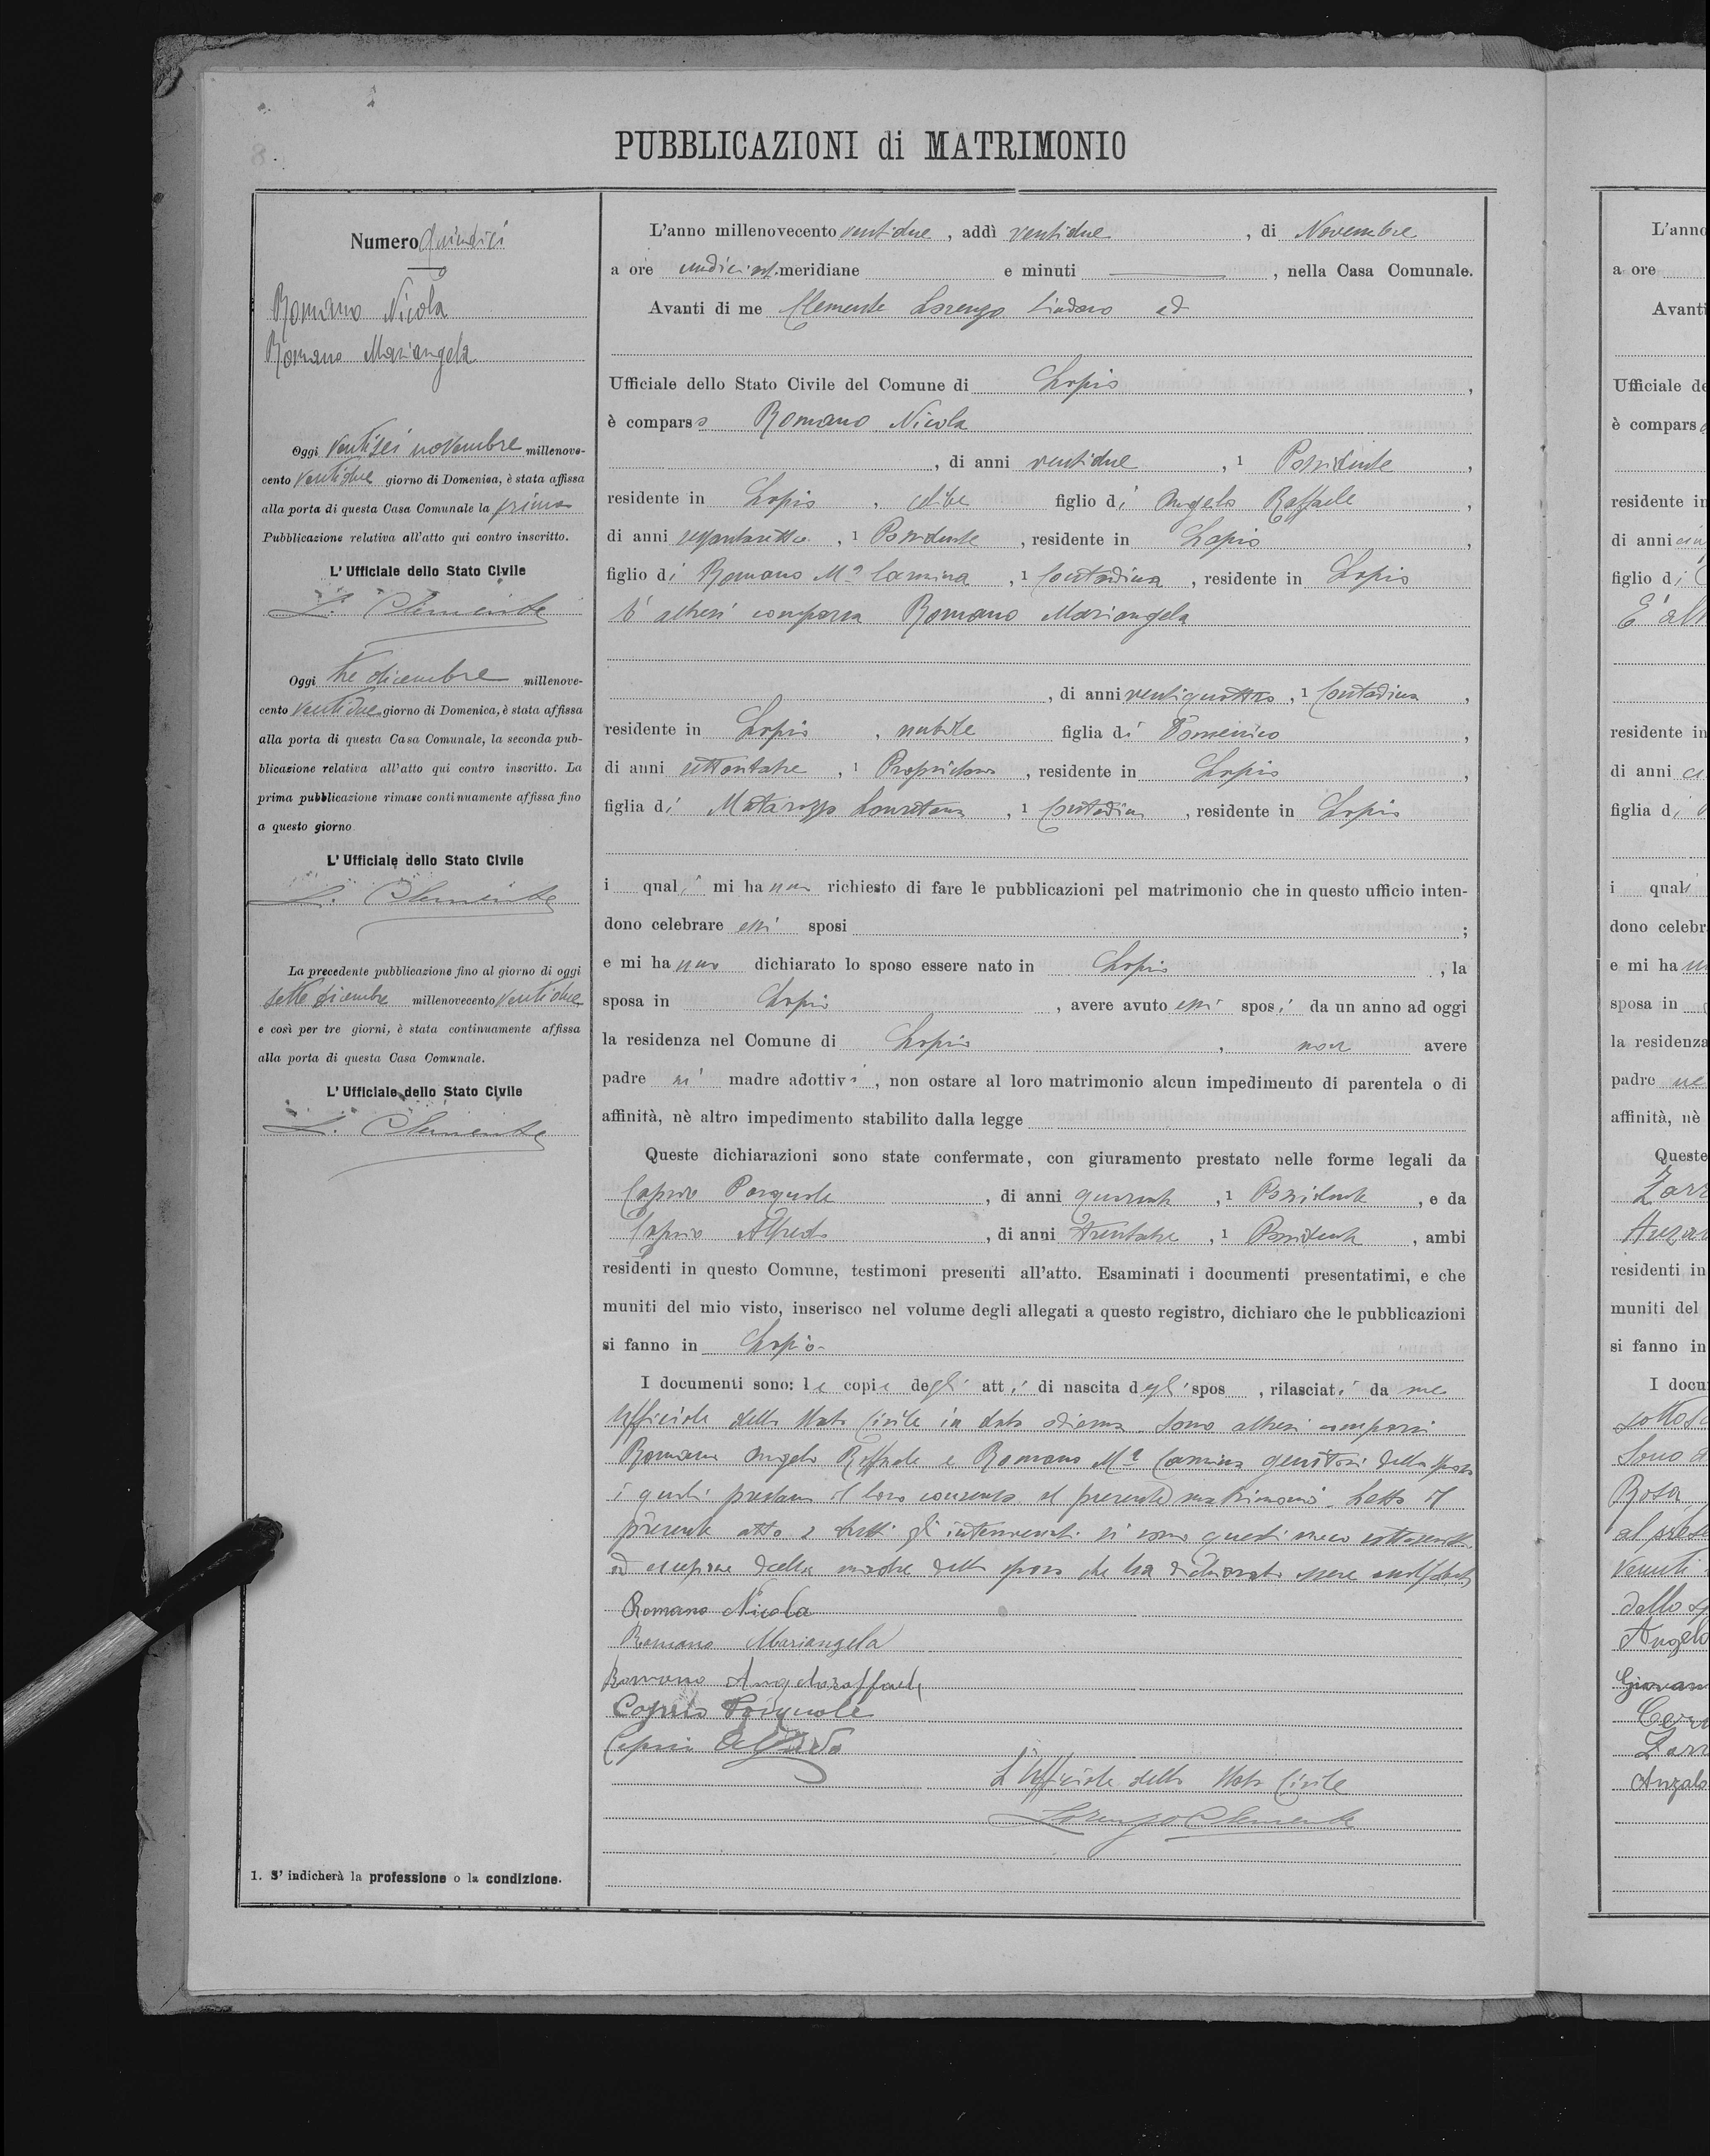 PUBBLICAZIONI di MATRIMONIO
Numero Quindici
Romano Nicola
Romano Mariangela
Oggi Ventisei novembre millenove-
cento Ventidue giorno di Domenica, è stata affissa
alla porta di questa Casa Comunale la prima
Pubblicazione relativa all'atto qui contro inscritto.
L'Ufficiale dello Stato Civile
L. Clemente
Oggi tre dicembre millenove-
cento Ventidue giorno di Domenica, è stata affissa
alla porta di questa Casa Comunale, la seconda pub-
blicazione relativa all'atto qui contro inscritto. La
prima pubblicazione rimase continuamente affissa fino
a questo giorno
L'Ufficiale dello Stato Civile
L. Clemente
La precedente pubblicazione fino al giorno di oggi
sette dicembre millenovecento Ventidue
e così per tre giorni, è stata continuamente affissa
alla porta di questa Casa Comunale.
L'Ufficiale dello Stato Civile
L. Clemente
1. S' indicherà la professione o la condizione.
L'anno millenovecento ventidue, addì ventidue, di Novembre
a ore undici ant.meridiane e minuti ——, nella Casa Comunale.
Avanti di me Clemente Lorenzo Sindaco ed
Ufficiale dello Stato Civile del Comune di Lapio,
è comparso Romano Nicola
, di anni ventidue, 1 Possidente,
residente in Lapio, celibe figlio di Angelo Raffaele,
di anni sessantasette, 1 Possidente, residente in Lapio,
figlio di Romano Ma Carmina, 1 Contadina, residente in Lapio
È altresì comparsa Romano Mariangela
, di anni ventiquattro, 1 Contadina,
residente in Lapio, nubile figlia di Domenico,
di anni settantatre, 1 Proprietario, residente in Lapio,
figlia di Matarazzo Lauretana, 1 Contadina, residente in Lapio
i quali mi hanno richiesto di fare le pubblicazioni pel matrimonio che in questo ufficio inten-
dono celebrare essi sposi ;
e mi hanno dichiarato lo sposo essere nato in Lapio, la
sposa in Lapio, avere avuto essi sposi da un anno ad oggi
la residenza nel Comune di Lapio, non avere
padre nè madre adottivi, non ostare al loro matrimonio alcun impedimento di parentela o di
affinità, nè altro impedimento stabilito dalla legge
Queste dichiarazioni sono state confermate, con giuramento prestato nelle forme legali da
Caprio Pasquale, di anni quaranta, 1 Possidente, e da
Caprio Alfredo, di anni trentatre, 1 Possidente, ambi
residenti in questo Comune, testimoni presenti all'atto. Esaminati i documenti presentatimi, e che
muniti del mio visto, inserisco nel volume degli allegati a questo registro, dichiaro che le pubblicazioni
si fanno in Lapio-
I documenti sono: le copie degli atti di nascita degli spos , rilasciati da me
Ufficiale dello Stato Civile in data odierna. Sono altresì comparsi
Romano Angelo Raffaele e Romano Ma Carmina genitori dello sposo
i quali prestano il loro consenso al presente matrimonio. Letto il
presente atto a tutti gli intervenuti si sono questi meco sottoscritti
ad eccezione della madre dello sposo che ha dichiarato essere analfabeta
Romano Nicola
Romano Mariangela
Romano Angeloraffaele
Caprio Pasquale
Caprio Alfredo
L'Ufficiale dello Stato Civile
Lorenzo Clemente
L'anno
a ore
Avanti
Ufficiale de
è compars
residente in
di anni
figlio di
E' alt
residente in
di anni
figlia di
i quali
dono celebr
e mi ha
sposa in
la residenza
padre ne
affinità, nè
Queste
Zarr
residenti in
muniti del
si fanno in
I docu
sottosc
Sono a
Rosa
al prese
venuti
dello s
Angelo
Giovan
Zarr